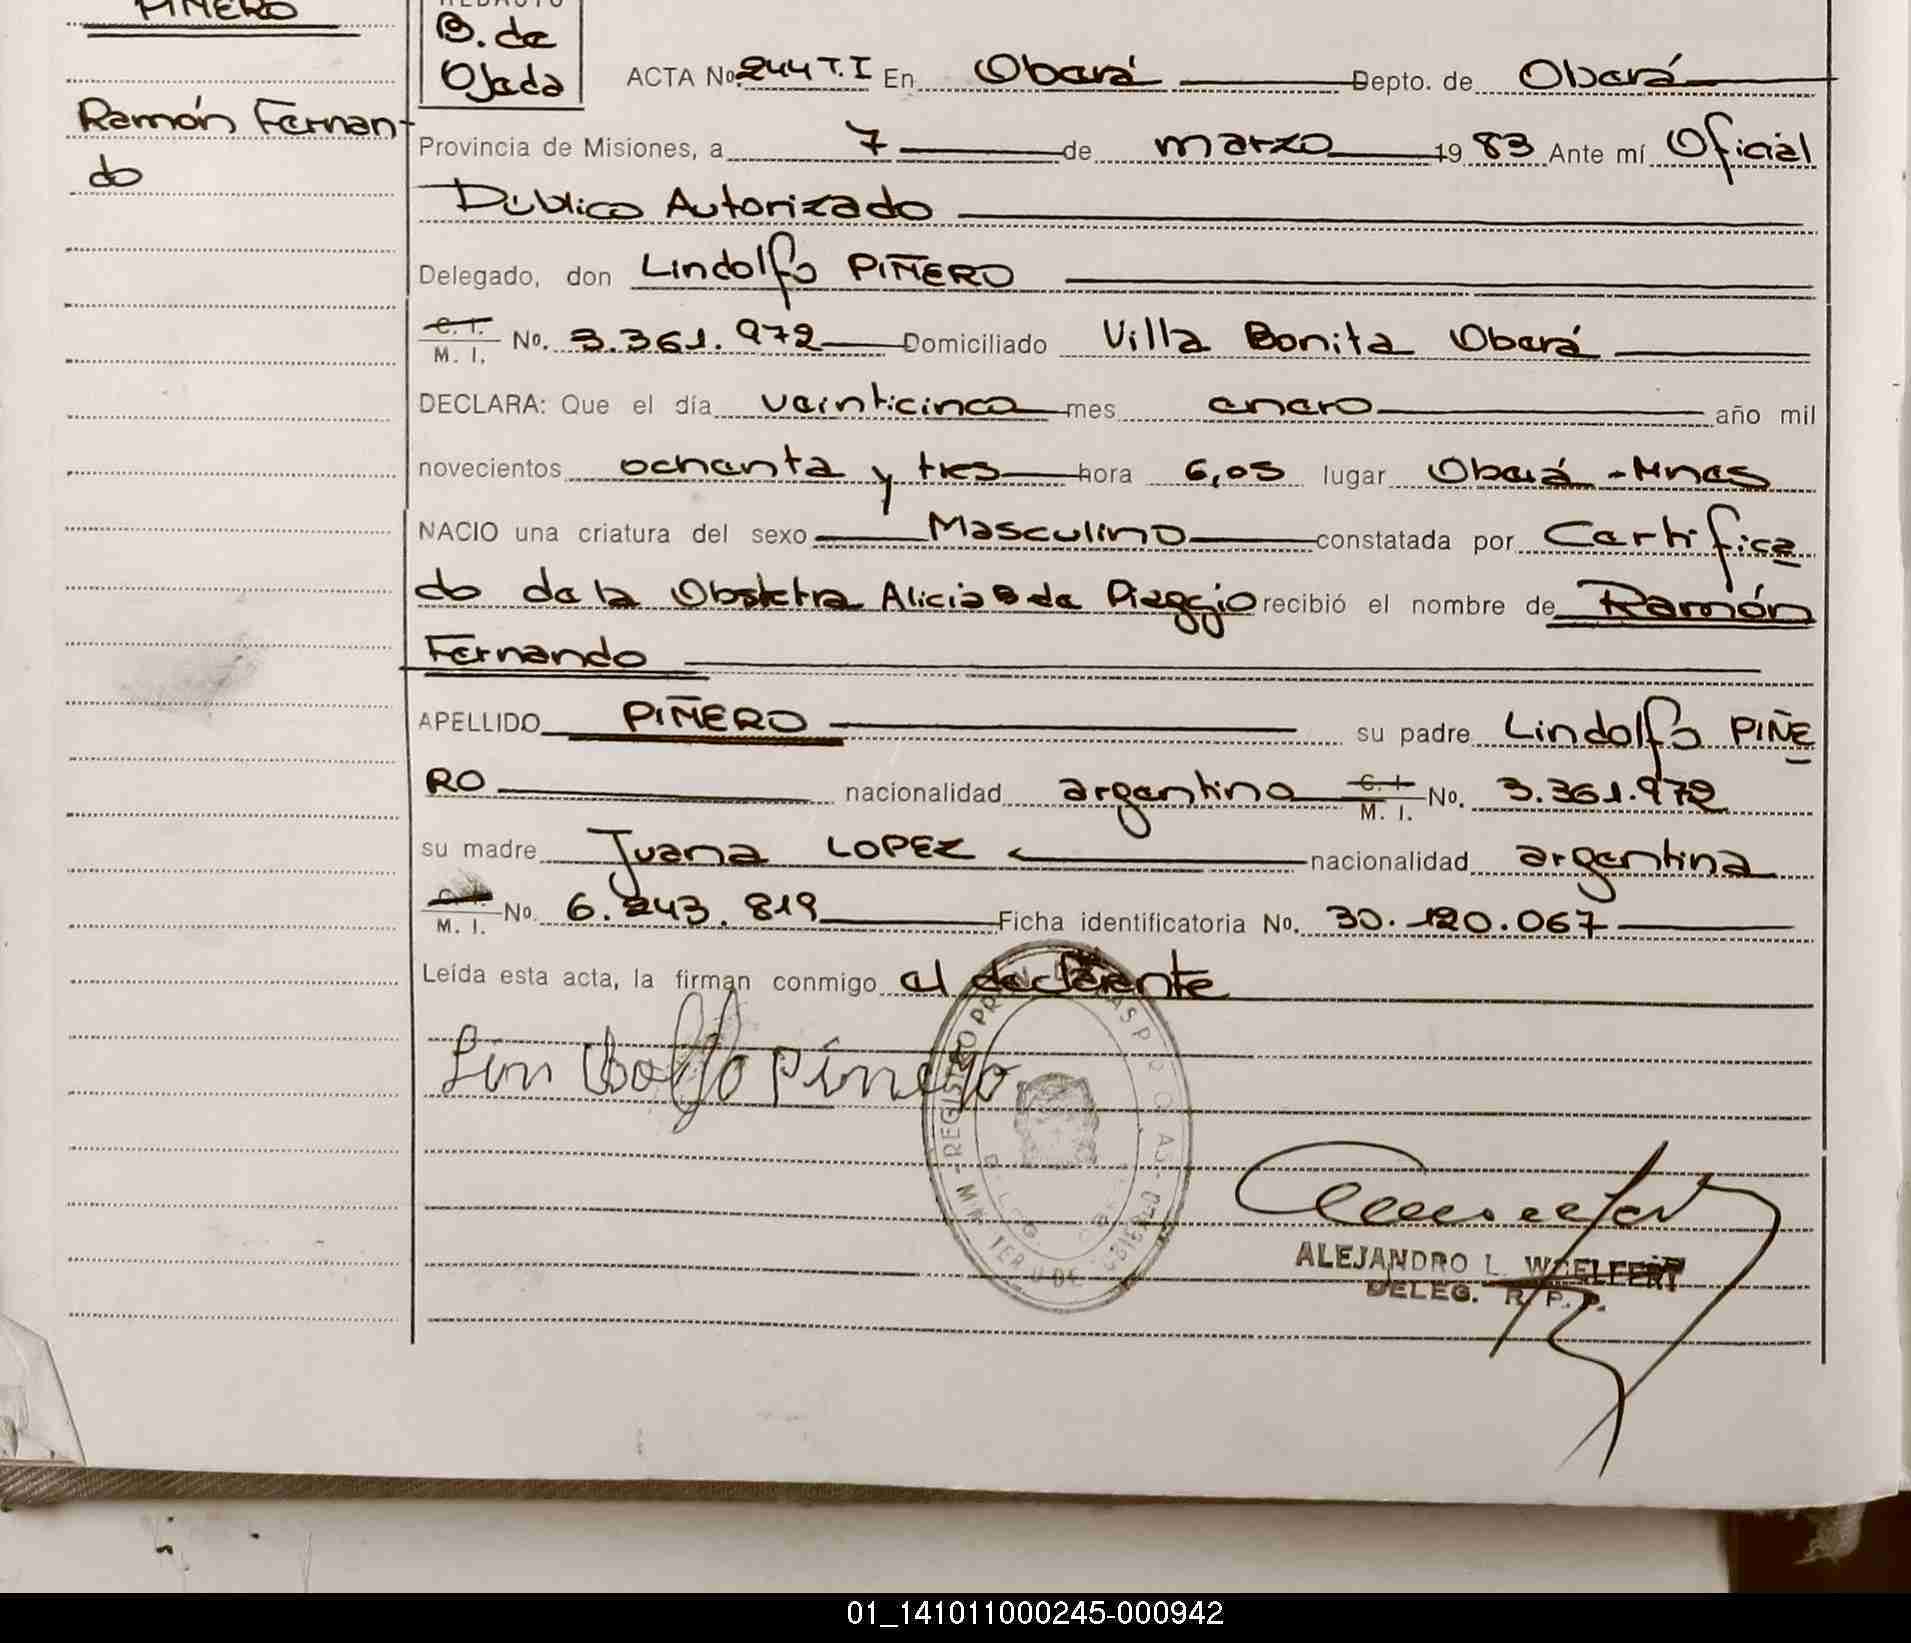 PIÑERO
Ramón Fernan-
do
REDACTO
B. de
Ojeda
ACTA No. 244 T.I En Oberá Depto. de Oberá
Provincia de Misiones, a 7 de marzo 1983 Ante mí Oficial
Público Autorizado
Delegado, don Lindolfo PIÑERO
C. I.
M. I. No. 3.361.972 Domiciliado Villa Bonita Oberá
DECLARA: Que el día veinticinco mes enero año mil
novecientos ochenta y tres hora 6,05 lugar Oberá - Mnes
NACIO una criatura del sexo Masculino constatada por Certifica
do de la Obstetra Alicia B de Piaggio recibió el nombre de Ramón
Fernando
APELLIDO PIÑERO su padre Lindolfo PIÑE
RO nacionalidad argentino C. I. M. I. No. 3.361.972
su madre Juana LOPEZ nacionalidad argentina
C. I.
M. I. No. 6.243.819 Ficha identificatoria No. 30.120.067
Leída esta acta, la firman conmigo el declarante
Lindolfo Piñero
REGISTRO
ALEJANDRO L. WOELFERT
DELEG. R. P. P.
01_141011000245-000942